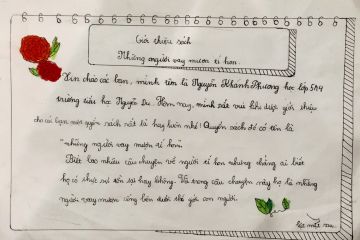 Giới thiệu sách
Những người vay mượn tí hon.
Xin chào các bạn, mình tên là Nguyễn Khánh Phương học lớp 5A4
trường tiểu học Nguyễn Du. Hôm nay, mình rất vui khi được giới thiệu
cho các bạn một quyển sách rất là hay luôn nhé! Quyển sách đó có tên là
"những người vay mượn tí hon".
Biết bao nhiêu câu chuyện về người tí hon nhưng chẳng ai biết
họ có thực sự tồn tại hay không. Và trong câu chuyện này họ là những
người vay mượn sống bên dưới thế giới con người.